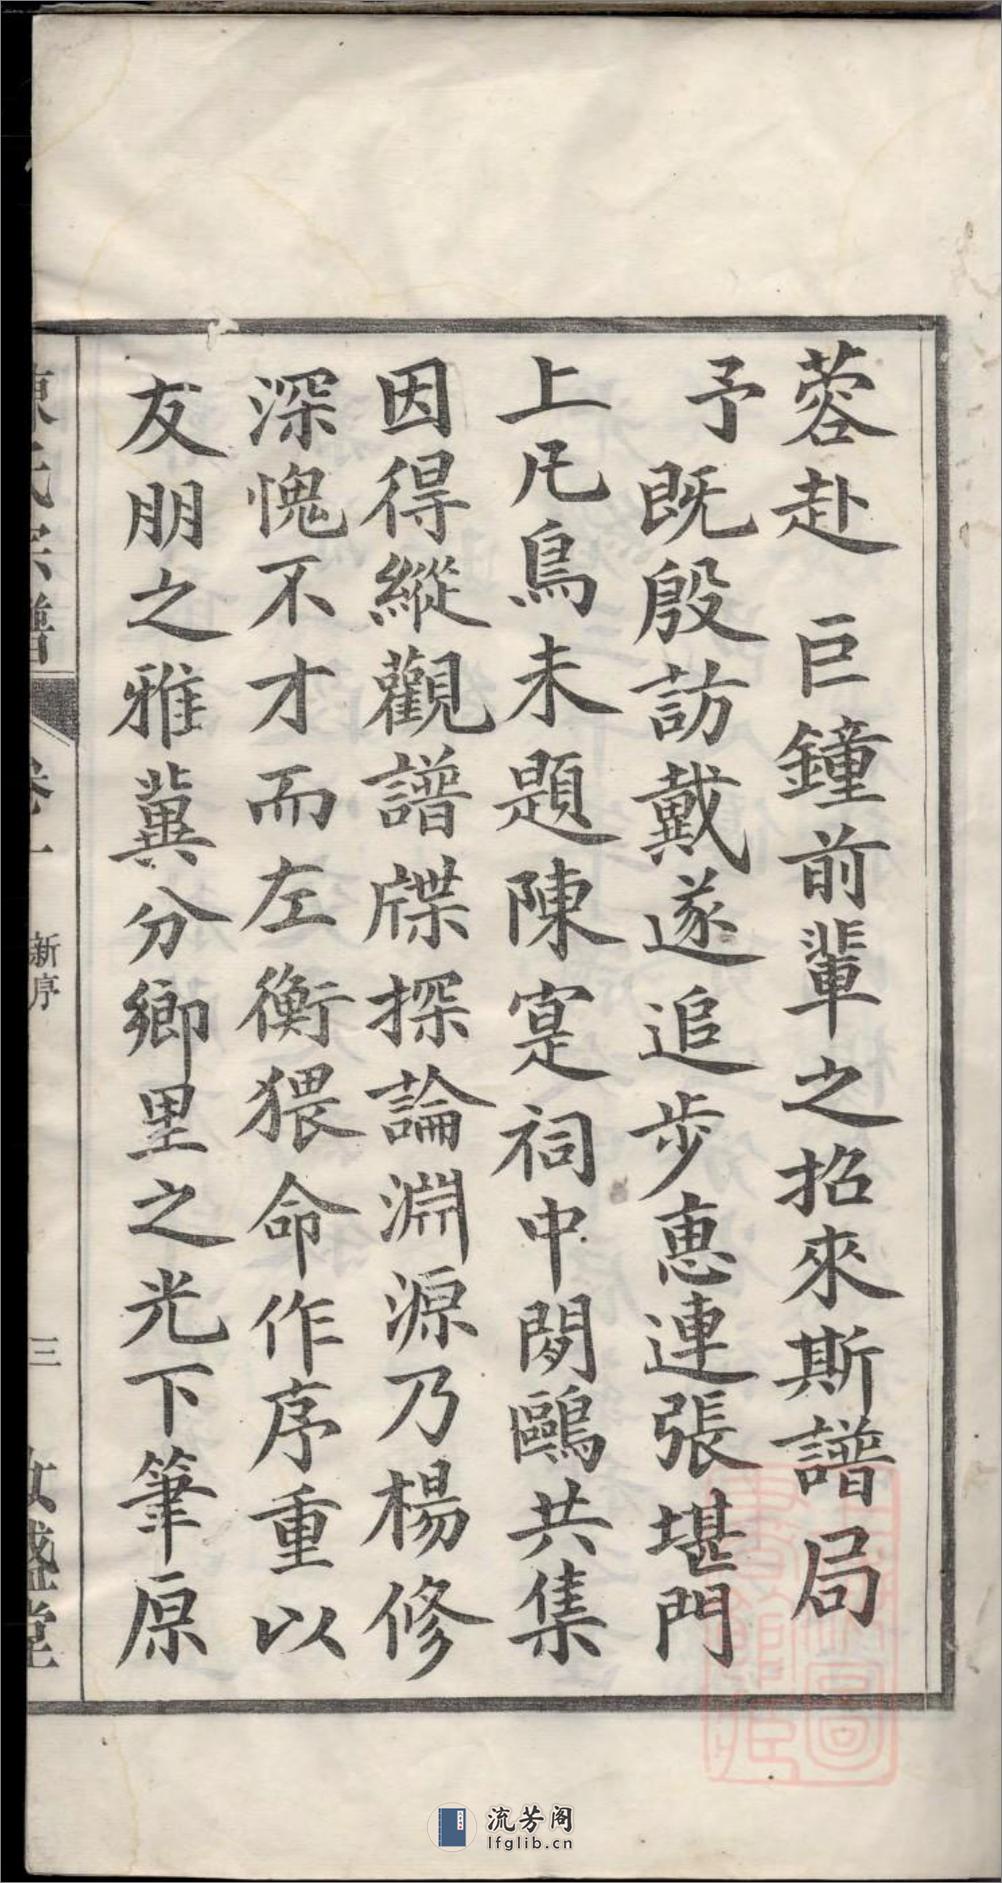 蓉赴　巨鐘前輩之招來斯譜局
予既殷訪戴遂追步惠連張堪門
上凡鳥未題陳寔祠中閒鷗共集
因得縱觀譜牒探論淵源乃楊修
深愧不才而左衡猥命作序重以
友朋之雅冀分鄉里之光下筆原
陳氏宗譜
卷一
新序
三
盛堂
流芳阁
lfglib.cn